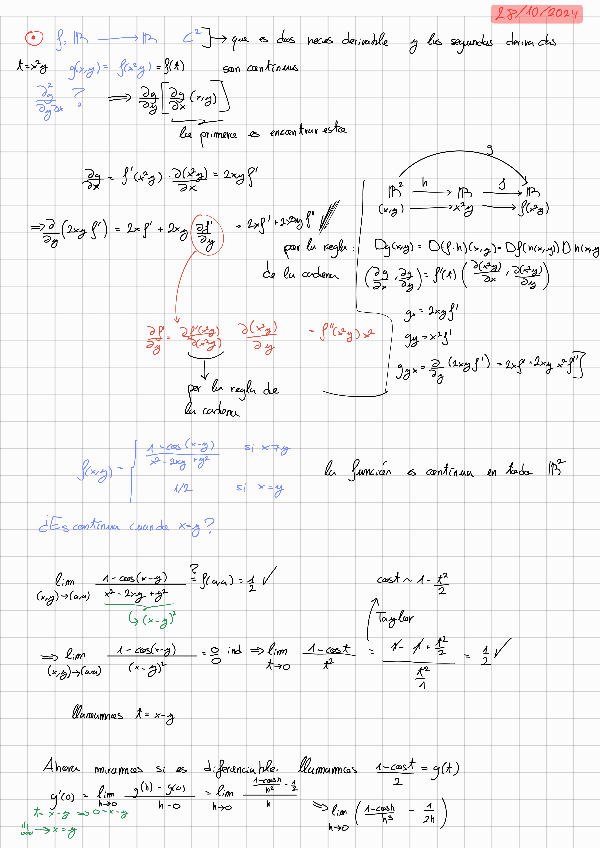 28/10/2024
⊙ f: ℝ → ℝ C²] → que es dos veces derivable y las segundas derivadas
t=x²y g(x,y) = f(x²y) = f(t) son continuas
∂²g/∂y∂x ? ⟹ ∂/∂y [∂g/∂x (x,y)]
lo primero es encontrar esta
∂g/∂x = f'(x²y) · ∂(x²y)/∂x = 2xy f'
⟹ ∂/∂y (2xy f') = 2x f' + 2xy ∂f'/∂y
por la regla
de la cadena
∂f'/∂y = ∂f'(x²y)/∂(x²y) ∂(x²y)/∂y = f''(x²y) x²
por la regla de
la cadena
g
ℝ² h→ ℝ f→ ℝ
(x,y) → x²y → f(x²y)
Dg(x,y) = D(f∘h)(x,y) = Df(h(x,y)) Dh(x,y)
(∂g/∂x, ∂g/∂y) = f'(t) (∂(x²y)/∂x, ∂(x²y)/∂y)
gx = 2xy f'
gy = x² f'
gyx = ∂/∂y (2xy f') = 2x f' + 2xy x² f'']
f(x,y) = { (1-cos(x-y))/(x²-2xy+y²) si x≠y
1/2 si x=y
la función es continua en todo ℝ²
¿Es continua cuando x=y?
lim (x,y)→(a,a) (1-cos(x-y))/(x²-2xy+y²) =? f(a,a) = 1/2 ✓
↳ (x-y)²
cos t ~ 1 - t²/2
Taylor
⟹ lim (x,y)→(a,a) (1-cos(x-y))/(x-y)² = 0/0 ind ⟹ lim t→0 (1-cos t)/t² = (1-1+t²/2)/(t²/1) = 1/2 ✓
llamamos t = x-y
Ahora miramos si es diferenciable. llamamos (1-cos t)/2 = g(t)
g'(0) = lim h→0 (g(h)-g(0))/(h-0) = lim h→0 ((1-cos h)/h² - 1/2)/h ⟹ lim h→0 ((1-cos h)/h³ - 1/2h)
t=x-y ⟹ 0=x-y
→ x=y